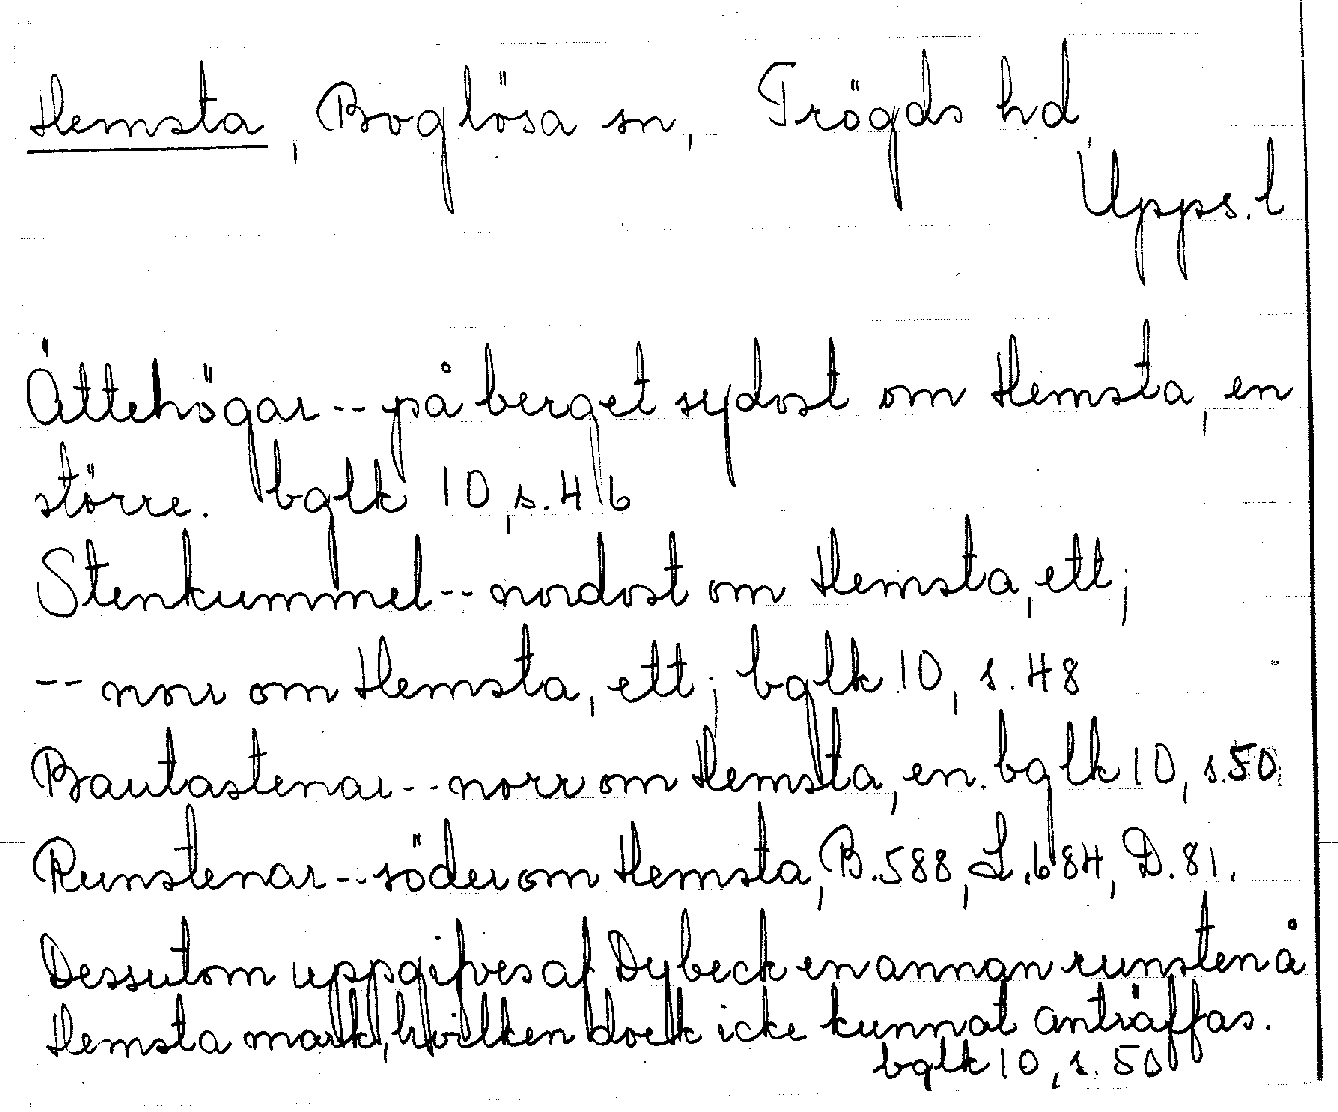 Hemsta, Boglösa sn, Trögds hd,
Upps. l
Ättehögar -- på berget sydost om Hemsta, en
större. bglk 10, s. 46
Stenkummel -- nordost om Hemsta, ett;
-- norr om Hemsta, ett; bglk 10, s. 48
Bautastenar -- norr om Hemsta, en. bglk 10, s. 50
Runstenar -- söder om Hemsta, B. 588, L. 684, D. 81.
Dessutom uppgifves af Dybeck en annan runsten å
Hemsta mark, hvilken dock icke kunnat anträffas.
bglk 10, s. 50